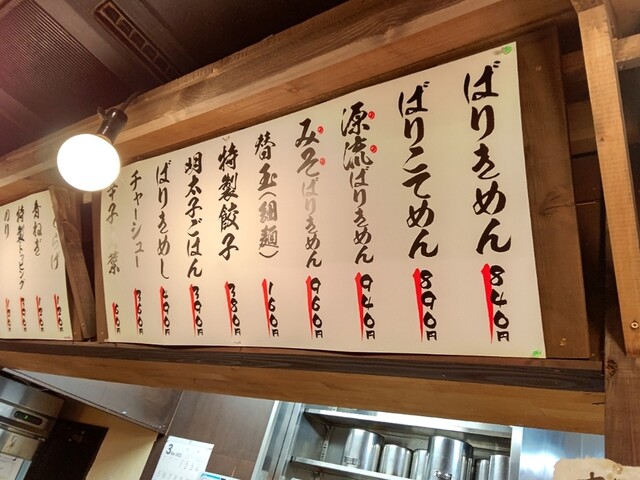 ばりきめん 840円
ばりこてめん 890円
源流ばりきめん 940円
みそばりきめん 960円
替玉(細麺) 160円
特製餃子 380円
明太子ごはん 390円
ばりきめし
チャーシュー
きくらげ
青ねぎ
特製トッピング
のり
3